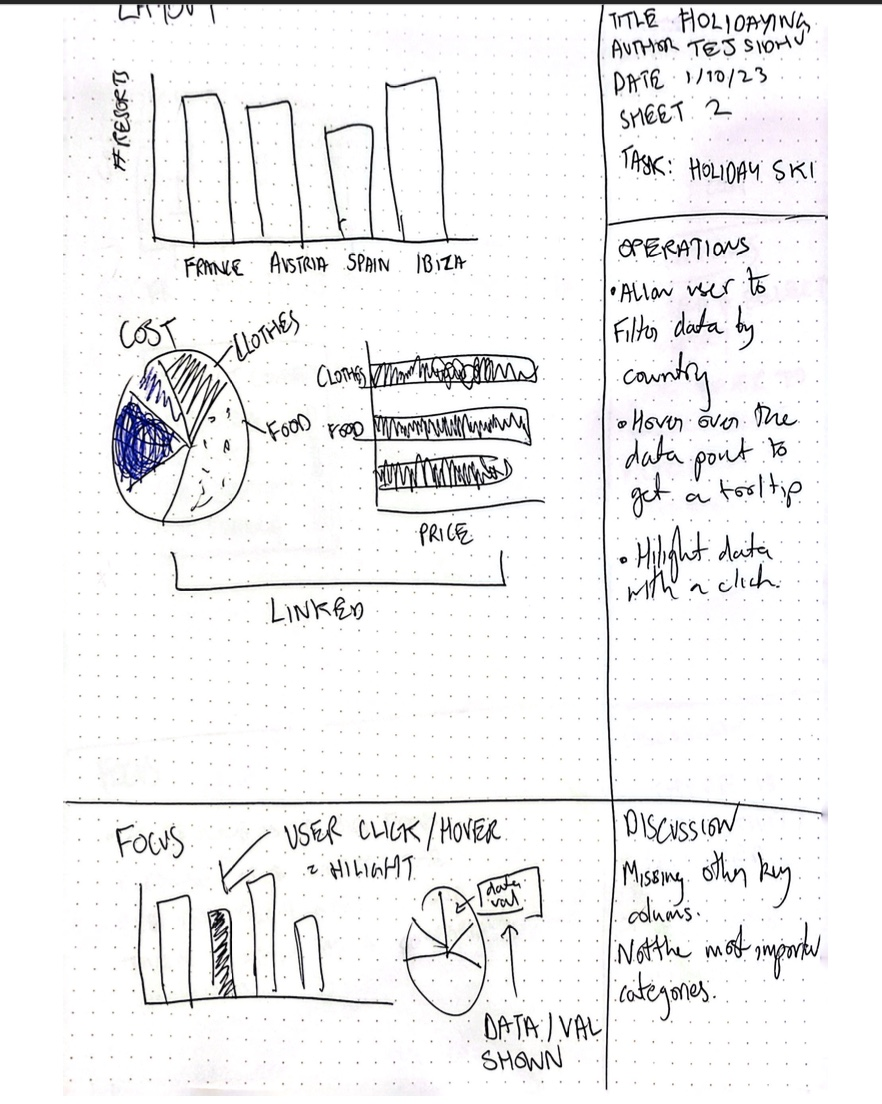 LAYOUT
# RESORTS
FRANCE AUSTRIA SPAIN IBIZA
COST
CLOTHES
FOOD
CLOTHES
FOOD
PRICE
LINKED
TITLE HOLIDAYING
AUTHOR TEJ SIDHU
DATE 1/10/23
SHEET 2
TASK: HOLIDAY SKI
OPERATIONS
• Allow user to
Filter data by
country
• Hover over the
data point to
get a tooltip
• Hilight data
with a click.
FOCUS
USER CLICK/HOVER
2 HILIGHT
data
val
DATA/VAL
SHOWN
DISCUSSION
Missing other key
colums.
Not the most importer
categories.